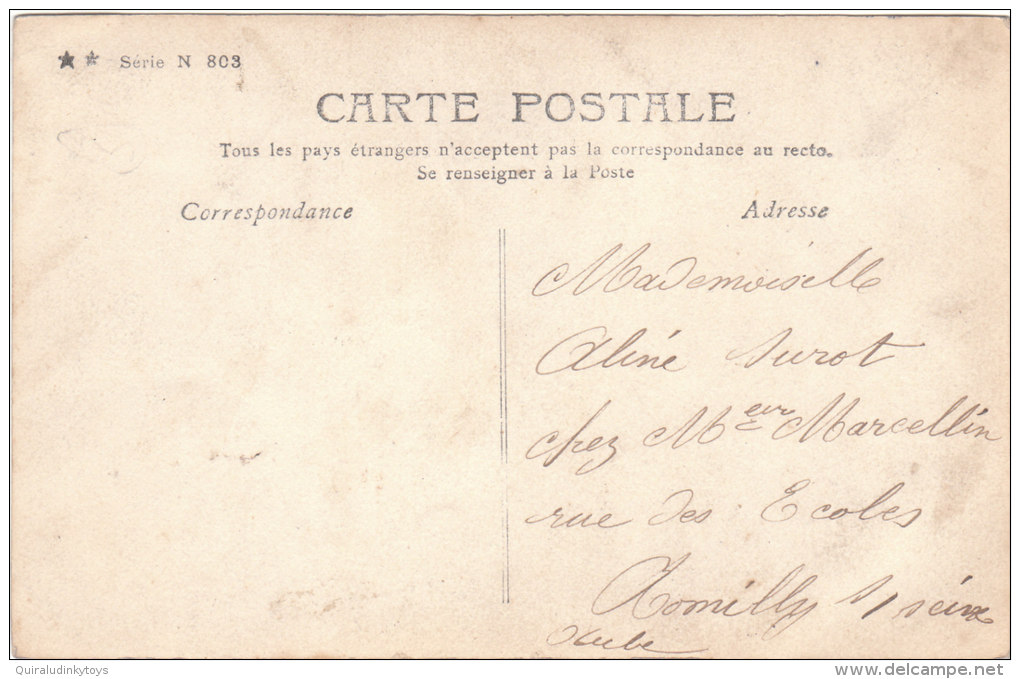 ★ ★ Série N 803
CARTE POSTALE
Tous les pays étrangers n'acceptent pas la correspondance au recto.
Se renseigner à la Poste
Correspondance
Adresse
Mademoiselle
Aline Surot
chez Meur Marcellin
rue des Ecoles
Romilly s/ seine
Aube
Quiraludinkytoys
www.delcampe.net